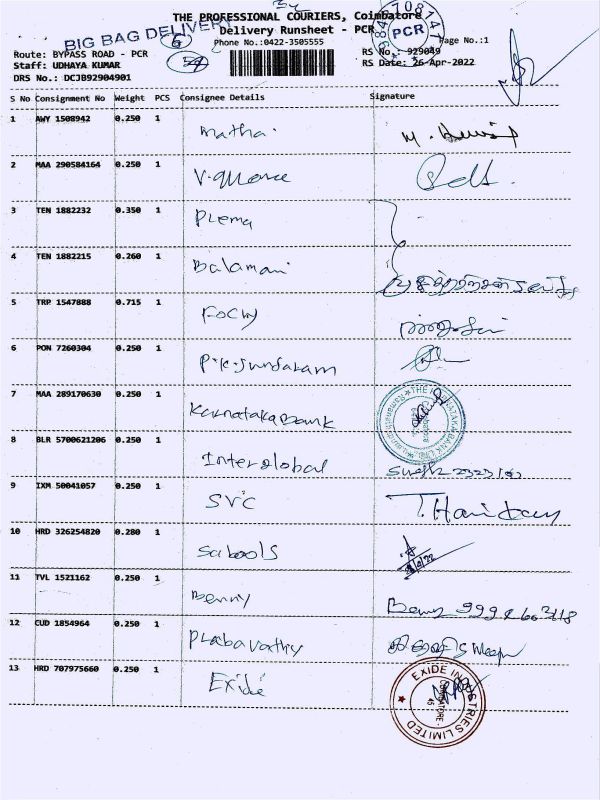 THE PROFESSIONAL COURIERS, Coimbatore
BIG BAG DELIVERY
Delivery Runsheet - PCR
PCR
Phone No.:0422-3505555
Page No.:1
Route: BYPASS ROAD - PCR
RS No.: 929049
Staff: UDHAYA KUMAR
RS Date: 26-Apr-2022
DRS No.: DCJB92904901
S No Consignment No Weight PCS Consignee Details Signature
1 AWY 1508942 0.250 1 Mathai
2 MAA 290584164 0.250 1
3 TEN 1882232 0.350 1 Prema
4 TEN 1882215 0.260 1 Balamani
5 TRP 1547888 0.715 1
6 PON 7260304 0.250 1 P.K.Sundaram
7 MAA 289170630 0.250 1 Karnataka Bank
8 BLR 5700621206 0.250 1 Interglobal
9 IXM 50041057 0.250 1 SVC
10 HRD 326254820 0.280 1 Sabools
11 TVL 1521162 0.250 1 Benny
12 CUD 1854964 0.250 1 Prabavathy
13 HRD 707975660 0.250 1 Exide
EXIDE INDUSTRIES LIMITED
COIMBATORE